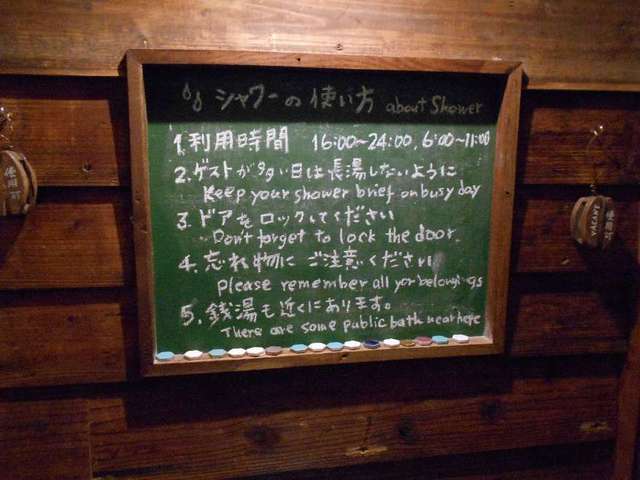 シャワーの使い方 about Shower
1. 利用時間 16:00~24:00, 6:00~11:00
2. ゲストが多い日は長湯しないように
Keep your shower brief on busy day
3. ドアをロックしてください
Don't forget to lock the door.
4. 忘れ物にご注意ください
please remember all yor belongings
5. 銭湯も近くにあります。
There are some public bath near here
使用可
VACANT
使用可